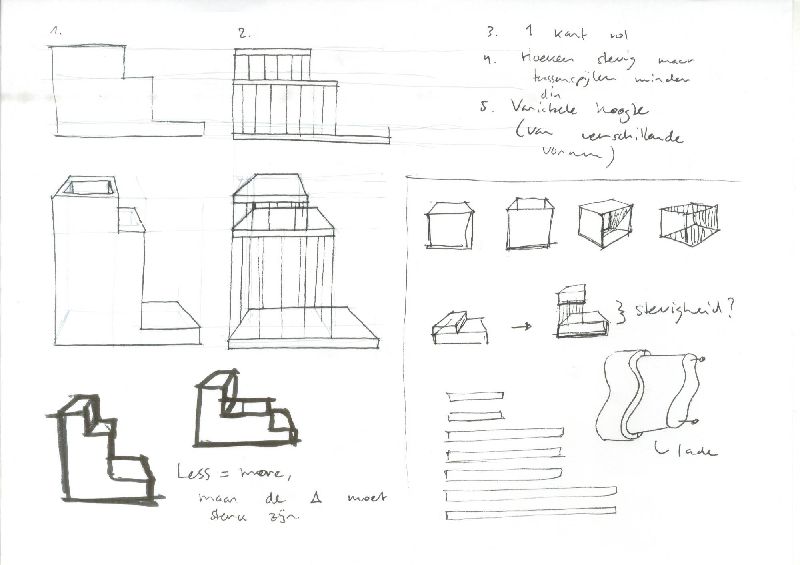 1.
2.
3. 1 kant vol
4. Hoeken stevig maar
tussenspijlen minder
din
5. Variabele hoogte
(van verschillende
vormen)
} stevigheid?
lade
Less = more,
maar de Δ moet
sterk zijn